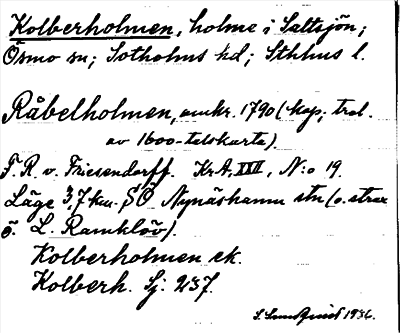 Kolberholmen, holme i Saltsjön;
Ösmo sn; Sotholms hd; Sthlms l.
Råbelholmen, omkr. 1790 (kop; trol.
av 1600-talskarta)
F. R. v. Friesendorff. KrA, XVII, N:o 19.
Läge 3,7 km. SÖ Nynäshamn stn (o. strax
ö. L. Ramklöv).
Kolberholmen ek.
Kolberh. Sj. 237.
S. 1936.